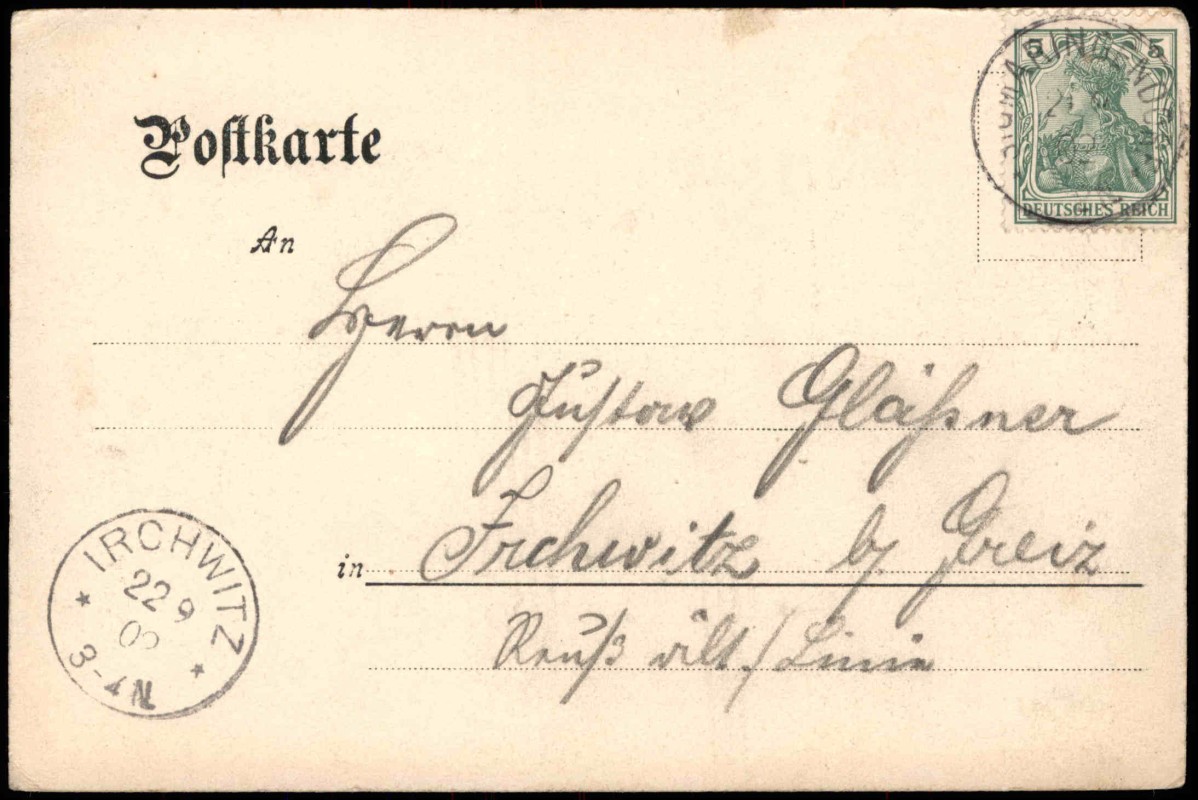 Postkarte
5 5
DEUTSCHES REICH
An
Herrn
Gustav Gläßner
in Irchwitz b/ Greiz
Reuß ält. Linie
IRCHWITZ
22 9
3-4N